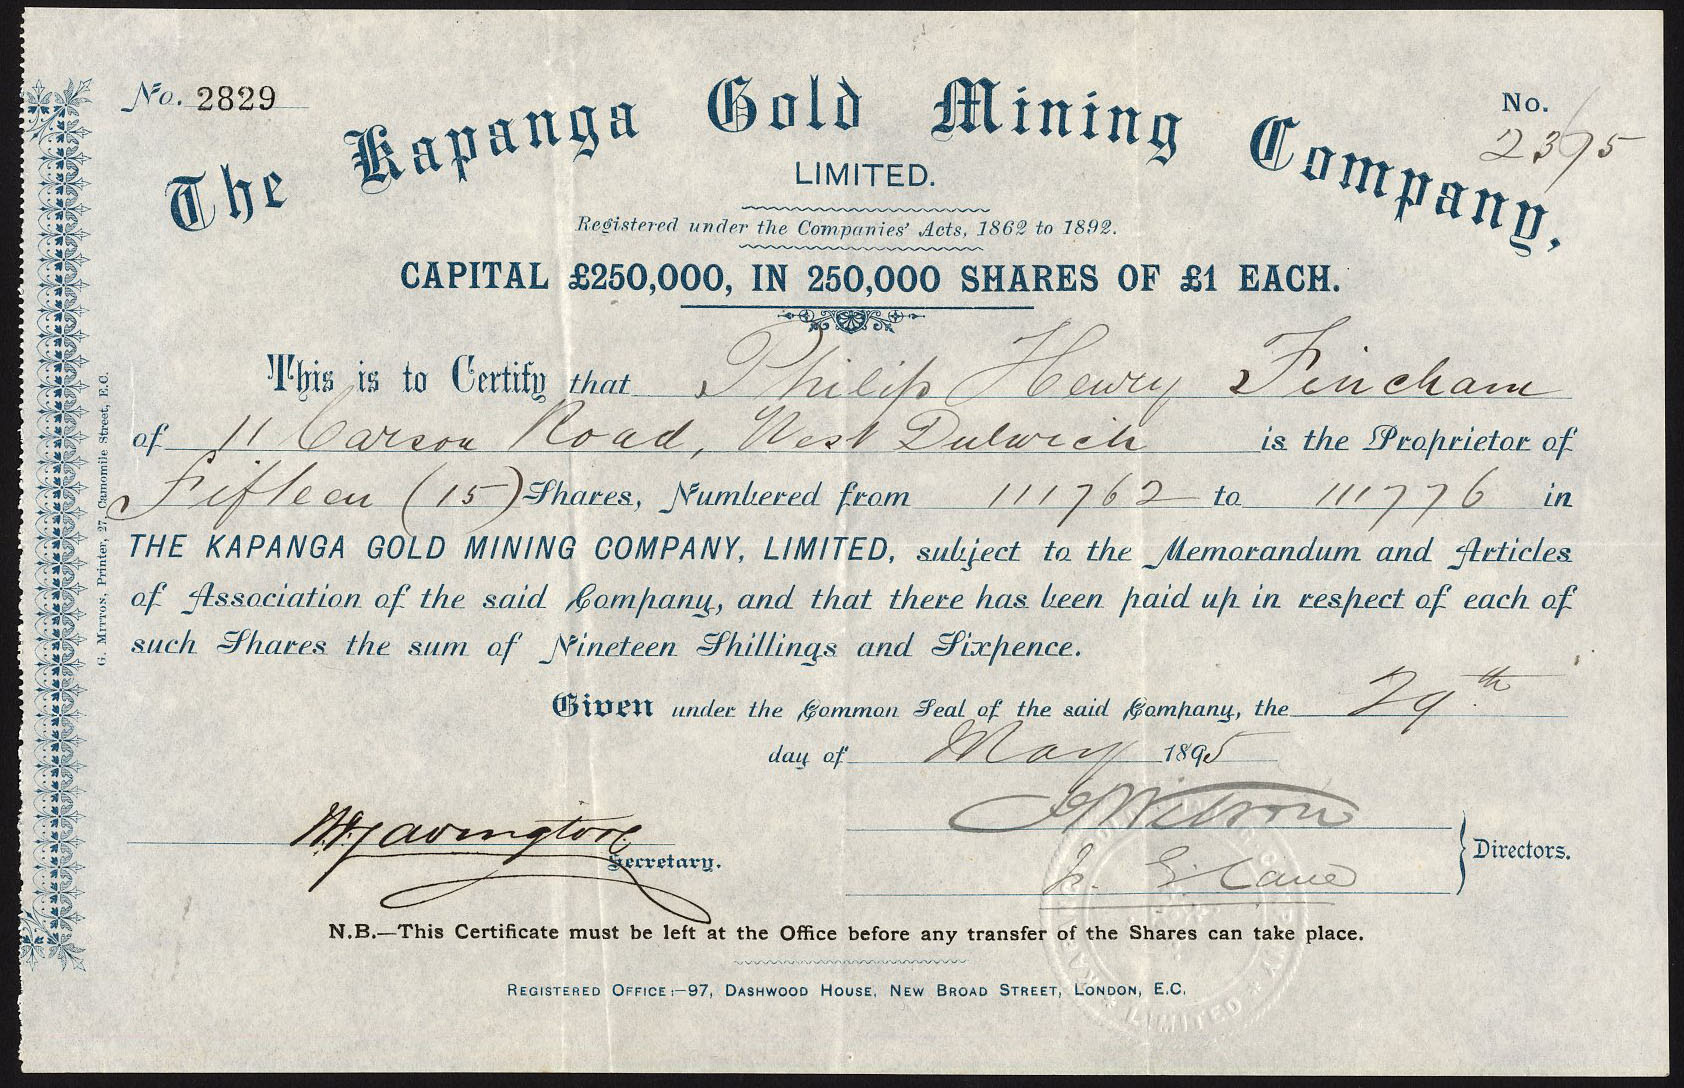 No. 2829
No. 2395
The Kapanga Gold Mining Company,
LIMITED.
Registered under the Companies' Acts, 1862 to 1892.
CAPITAL £250,000, IN 250,000 SHARES OF £1 EACH.
This is to Certify that Philip Henry Fincham
of 11 Carson Road, West Dulwich is the Proprietor of
Fifteen (15) Shares, Numbered from 111762 to 111776 in
THE KAPANGA GOLD MINING COMPANY, LIMITED, subject to the Memorandum and Articles
of Association of the said Company, and that there has been paid up in respect of each of
such Shares the sum of Nineteen Shillings and Sixpence.
Given under the Common Seal of the said Company, the 29th
day of May 1895
Wilson
Secretary.
Directors.
N.B.—This Certificate must be left at the Office before any transfer of the Shares can take place.
REGISTERED OFFICE:—97, DASHWOOD HOUSE, NEW BROAD STREET, LONDON, E.C.
LIMITED
Printer, 27, Camomile Street, E.C.